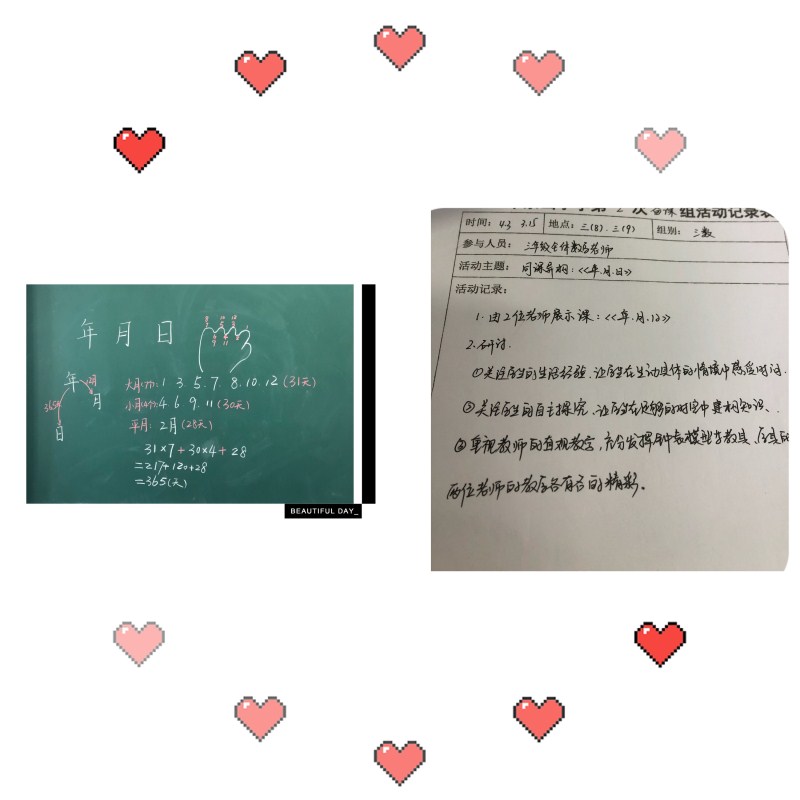 年 月 日
8 10 12
9 11
年 12月
365天 月
日
大月(7个): 1. 3. 5. 7. 8. 10. 12 (31天)
小月(4个): 4. 6. 9. 11 (30天)
平月: 2月 (28天)
31×7+30×4+28
=217+120+28
=365(天)
BEAUTIFUL DAY_
次 备课 组活动记录表
时间: 4.3 3.15 地点: 三(8).三(9) 组别: 三数
参与人员: 三年级全体数学老师
活动主题: 同课异构:《年.月.日》
活动记录:
1. 由2位老师展示课:《年.月.日》
2. 研讨.
①关注学生的生活经验,让学生在生动具体的情境中感受时间.
②关注学生的自主探究,让学生在足够的时空中建构知识、
③重视教师的直观教学,充分发挥钟表模型等教具、
两位老师的教学各有各的精彩。